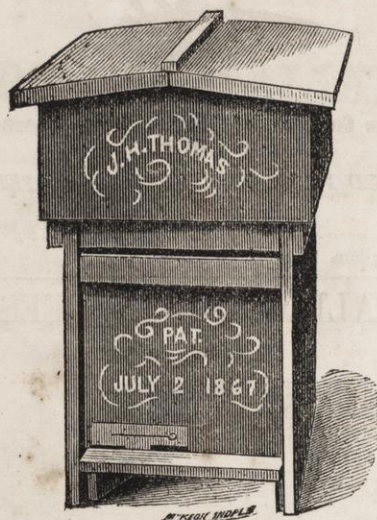 J.H.THOMAS
PAT.
JULY 2 1867